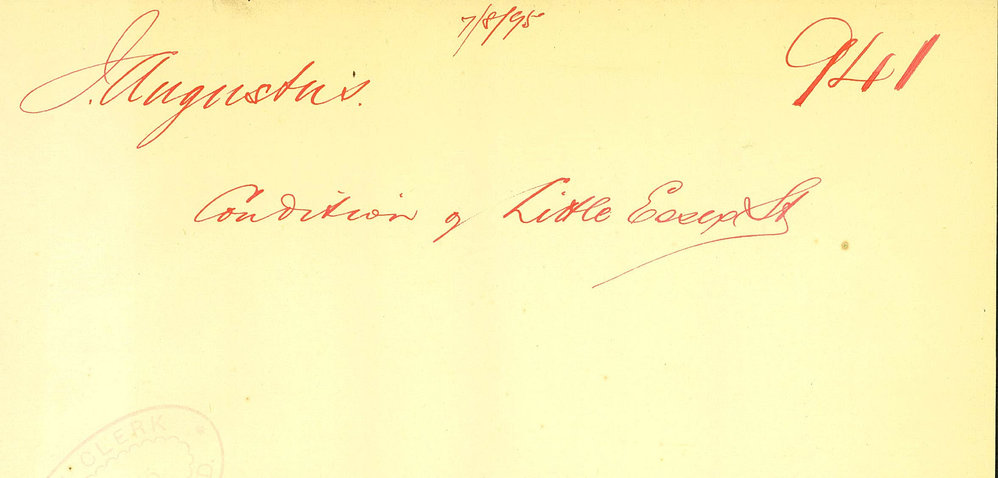 7/8/95
J. Augustus.
941
Condition of Little Essex St
CLERK